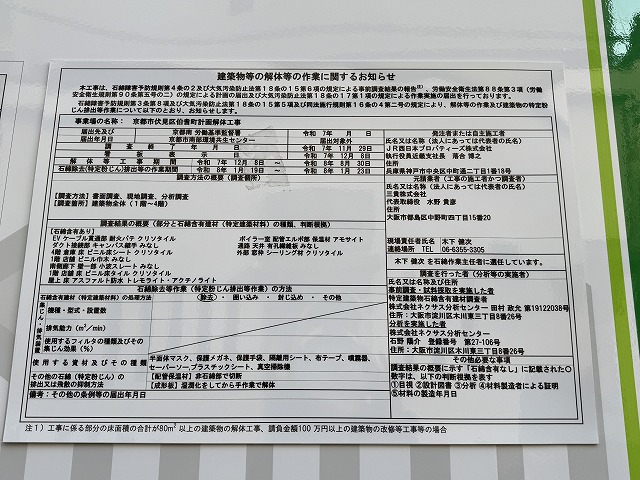 建築物等の解体等の作業に関するお知らせ
本工事は、石綿障害予防規則第4条の2及び大気汚染防止法第18条の15第6項の規定による事前調査結果の報告、労働安全衛生法第88条第3項（労働安全衛生規則第90条第五号の二）の規定による計画の届出及び大気汚染防止法第18条の17第1項の規定による作業実施の届出を行っております。
石綿障害予防規則第3条第8項及び大気汚染防止法第18条の15第5項及び同法施行規則第16条の4第二号の規定により、解体等の作業及び建築物の特定粉じん排出等作業について以下のとおり、お知らせします。
事業場の名称： 京都市伏見区伯耆町計画解体工事
届出先及び届出年月日
京都南 労働基準監督署 令和 7年 月 日
京都市南部環境共生センター 届出対象外
調査終了年月日 令和 7年 11月 29日
看板表示日 令和 7年 12月 6日
解体等工事期間 令和 7年 12月 8日 ～ 令和 8年 6月 30日
石綿除去(特定粉じん)排出等の作業期間 令和 8年 1月 19日 ～ 令和 8年 1月 23日
調査方法の概要（調査箇所）
【調査方法】書面調査、現地調査、分析調査
【調査箇所】建築物全体（1階～4階）
調査結果の概要（部分と石綿含有建材（特定建築材料）の種類、判断根拠）
【石綿含有あり】
EVケーブル貫通部 耐火パテ クリソタイル
ダクト接続部 キャンバス継手 みなし
4階 倉庫 床 ビニル床シート クリソタイル
1階 店舗 ビニル巾木 みなし
南側廊下 壁一部 小波スレート みなし
1階 店舗 床 ビニル床タイル クリソタイル
屋上 床 アスファルト防水 トレモライト・アクチノライト
ボイラー室 配管エルボ部 保温材 アモサイト
通路 天井 有孔珪線板 みなし
外部 窓枠 シーリング材 クリソタイル
石綿除去等作業（特定粉じん排出等作業）の方法
石綿含有建材（特定建築材料）の処理方法 除去・囲い込み・封じ込め・その他
集じん・排気装置
機種・型式・設置数
排気能力（m³/min）
使用するフィルタの種類及びその集じん効率（%）
使用する資材及びその種類 半面体マスク、保護メガネ、保護手袋、隔離用シート、布テープ、噴霧器、セーバーソー、プラスチックシート、真空掃除機
その他の石綿（特定粉じん）の排出又は飛散の抑制方法
【配管保温材】非石綿部で切断
【成形板】湿潤化をしてから手作業で解体
備考：その他の条例等の届出年月日
発注者または自主施工者
氏名又は名称（法人にあっては代表者の氏名）
JR西日本プロパティーズ株式会社
執行役員近畿支社長 落合 博之
住所
兵庫県神戸市中央区中町通二丁目1番18号
元請業者（工事の施工者かつ調査者）
氏名又は名称（法人にあっては代表者の氏名）
三貴株式会社
代表取締役 水野 貴彦
住所
大阪市都島区中野町四丁目15番20号
現場責任者氏名 木下 健次
連絡場所 TEL 06-6355-3305
木下 健次 を石綿作業主任者に選任しています。
調査を行った者（分析等の実施者）
氏名又は名称及び住所
事前調査・試料採取を実施した者
特定建築物石綿含有建材調査者
株式会社ネクサス分析センター 田村 政允 第19122038号
住所：大阪市淀川区木川東三丁目8番26号
分析を実施した者
株式会社ネクサス分析センター
石野 陽介 登録番号 第27-106号
住所：大阪市淀川区木川東三丁目8番26号
その他必要な事項
調査結果の概要に示す「石綿含有なし」に記載された○数字は、以下の判断根拠を表す
①目視 ②設計図書 ③分析 ④材料製造者による証明 ⑤材料の製造年月日
注1）工事に係る部分の床面積の合計が80m²以上の建築物の解体工事、請負金額100万円以上の建築物の改修等工事等の場合